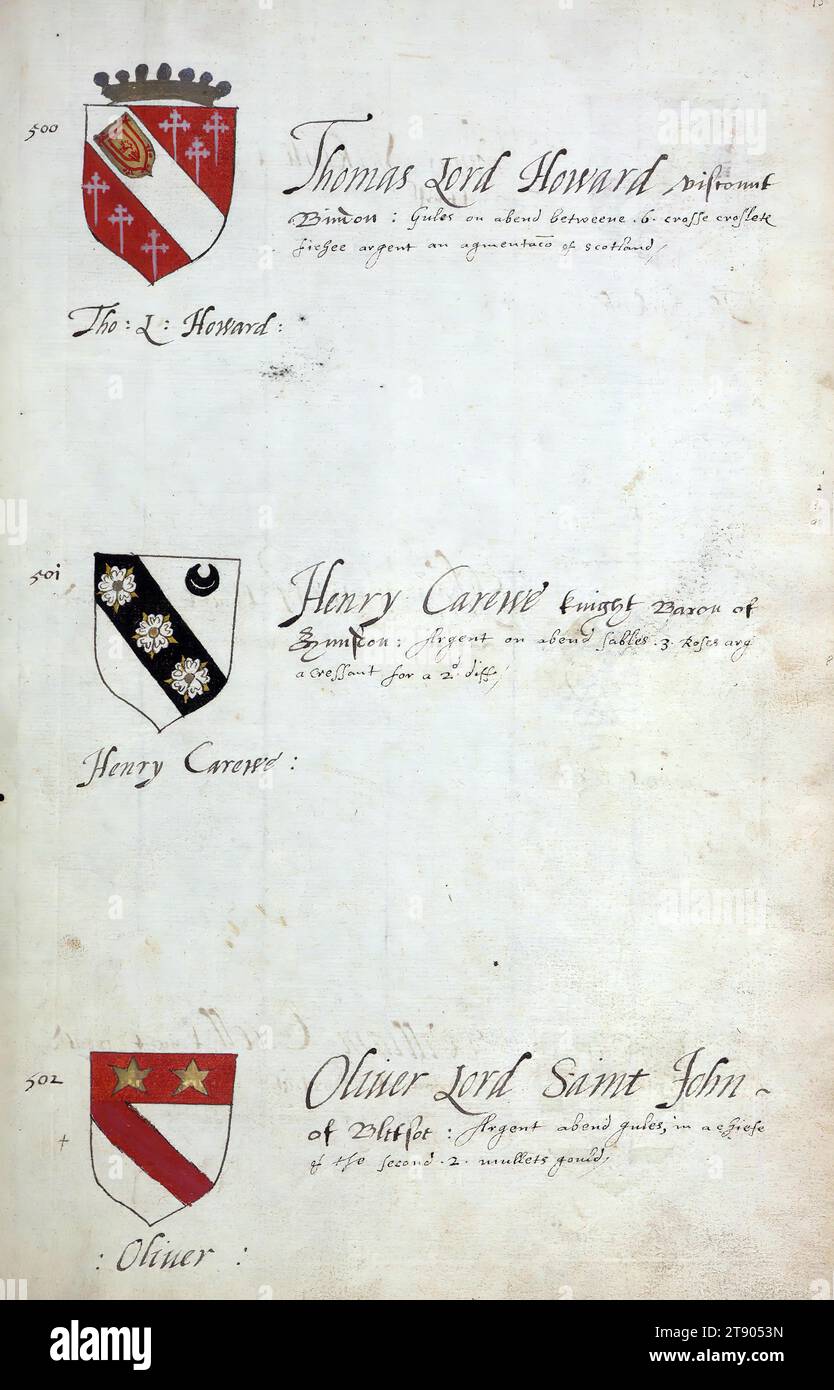 500
Thomas Lord Howard viscount
Bindon : Gules on abend betweene .6. crosse croslete
fichee argent an agmentaco of scotland
Tho : L : Howard :
501
Henry Carewe knight Baron of
Argent on abend sables .3. Roses arg
a cressant for a 2d diff
Henry Carewe :
502
Oliuer Lord Saint John ~
of Bletsoe : Argent abend gules, in a chiefe
of the second .2. mullets gould
: Oliuer :
alamy
alamy
alamy
alamy
Image ID: 2T9053N
www.alamy.com